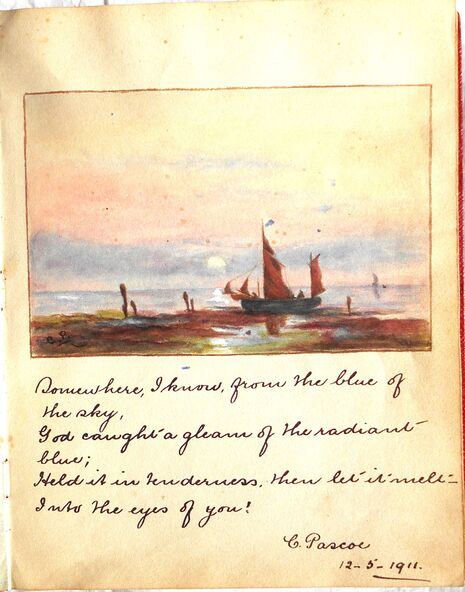 C. P.
Somewhere, I know, from the blue of
the sky,
God caught a gleam of the radiant
blue;
Held it in tenderness, then let it melt-
Into the eyes of you!
C. Pascoe
12-5-1911.